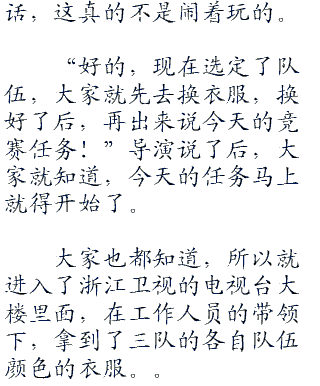 话，这真的不是闹着玩的。
“好的，现在选定了队
伍，大家就先去换衣服，换
好了后，再出来说今天的竞
赛任务！”导演说了后，大
家就知道，今天的任务马上
就得开始了。
大家也都知道，所以就
进入了浙江卫视的电视台大
楼里面，在工作人员的带领
下，拿到了三队的各自队伍
颜色的衣服。。